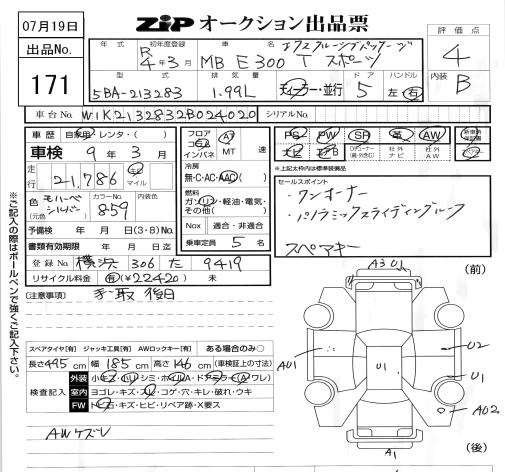 07月19日
出品No.
171
ZIP オークション出品票
評価点
4
内装
B
年式
初年度登録
R4年3月
車名
エクスクルーシブパッケージ
MB E300 T スポーツ
型式
5BA-213283
排気量
1.99L
ディーラー・並行
ドア
5
ハンドル
左・右
車台No.
W1K2132832B024020
シリアルNo.
車歴 自家用・レンタ・( )
車検 9年3月
走行 21,786 キロ マイル
色(元色) モハーベシルバー
カラーNo. 859
予備検 年 月 日(3・8)No.
書類有効期限 年 月 日迄
登録No. 横浜 306 た 9419
リサイクル料金 有(¥22420) 未
フロア コラム インパネ
AT
MT 速
冷房
無・C・AC・AAC( )
燃料
ガソリン・軽油・電気・その他( )
Nox 適合・非適合
乗車定員 5 名
PS PW SR 革 AW
ナビ エアB
社外ナビ 社外AW
※上記太枠内は標準装備品
セールスポイント
・ワンオーナー
・パノラミックスライディングルーフ
スペアキー
(注意事項)
手取後日
スペアタイヤ[有] ジャッキ工具[有] AWロックキー[有] ある場合のみ○
長さ495cm 幅185cm 高さ146cm (車検証上の寸法)
検査記入
外装
室内 ヨゴレ・キズ・スレ・コゲ・穴・キレ・破れ・ウキ
FW トビ石・キズ・ヒビ・リペア跡・X要ス
AWケズレ
※ご記入の際はボールペンで強くご記入下さい。
(前)
A3 U1
A U1
U1
U2
U1
A U2
A1
(後)